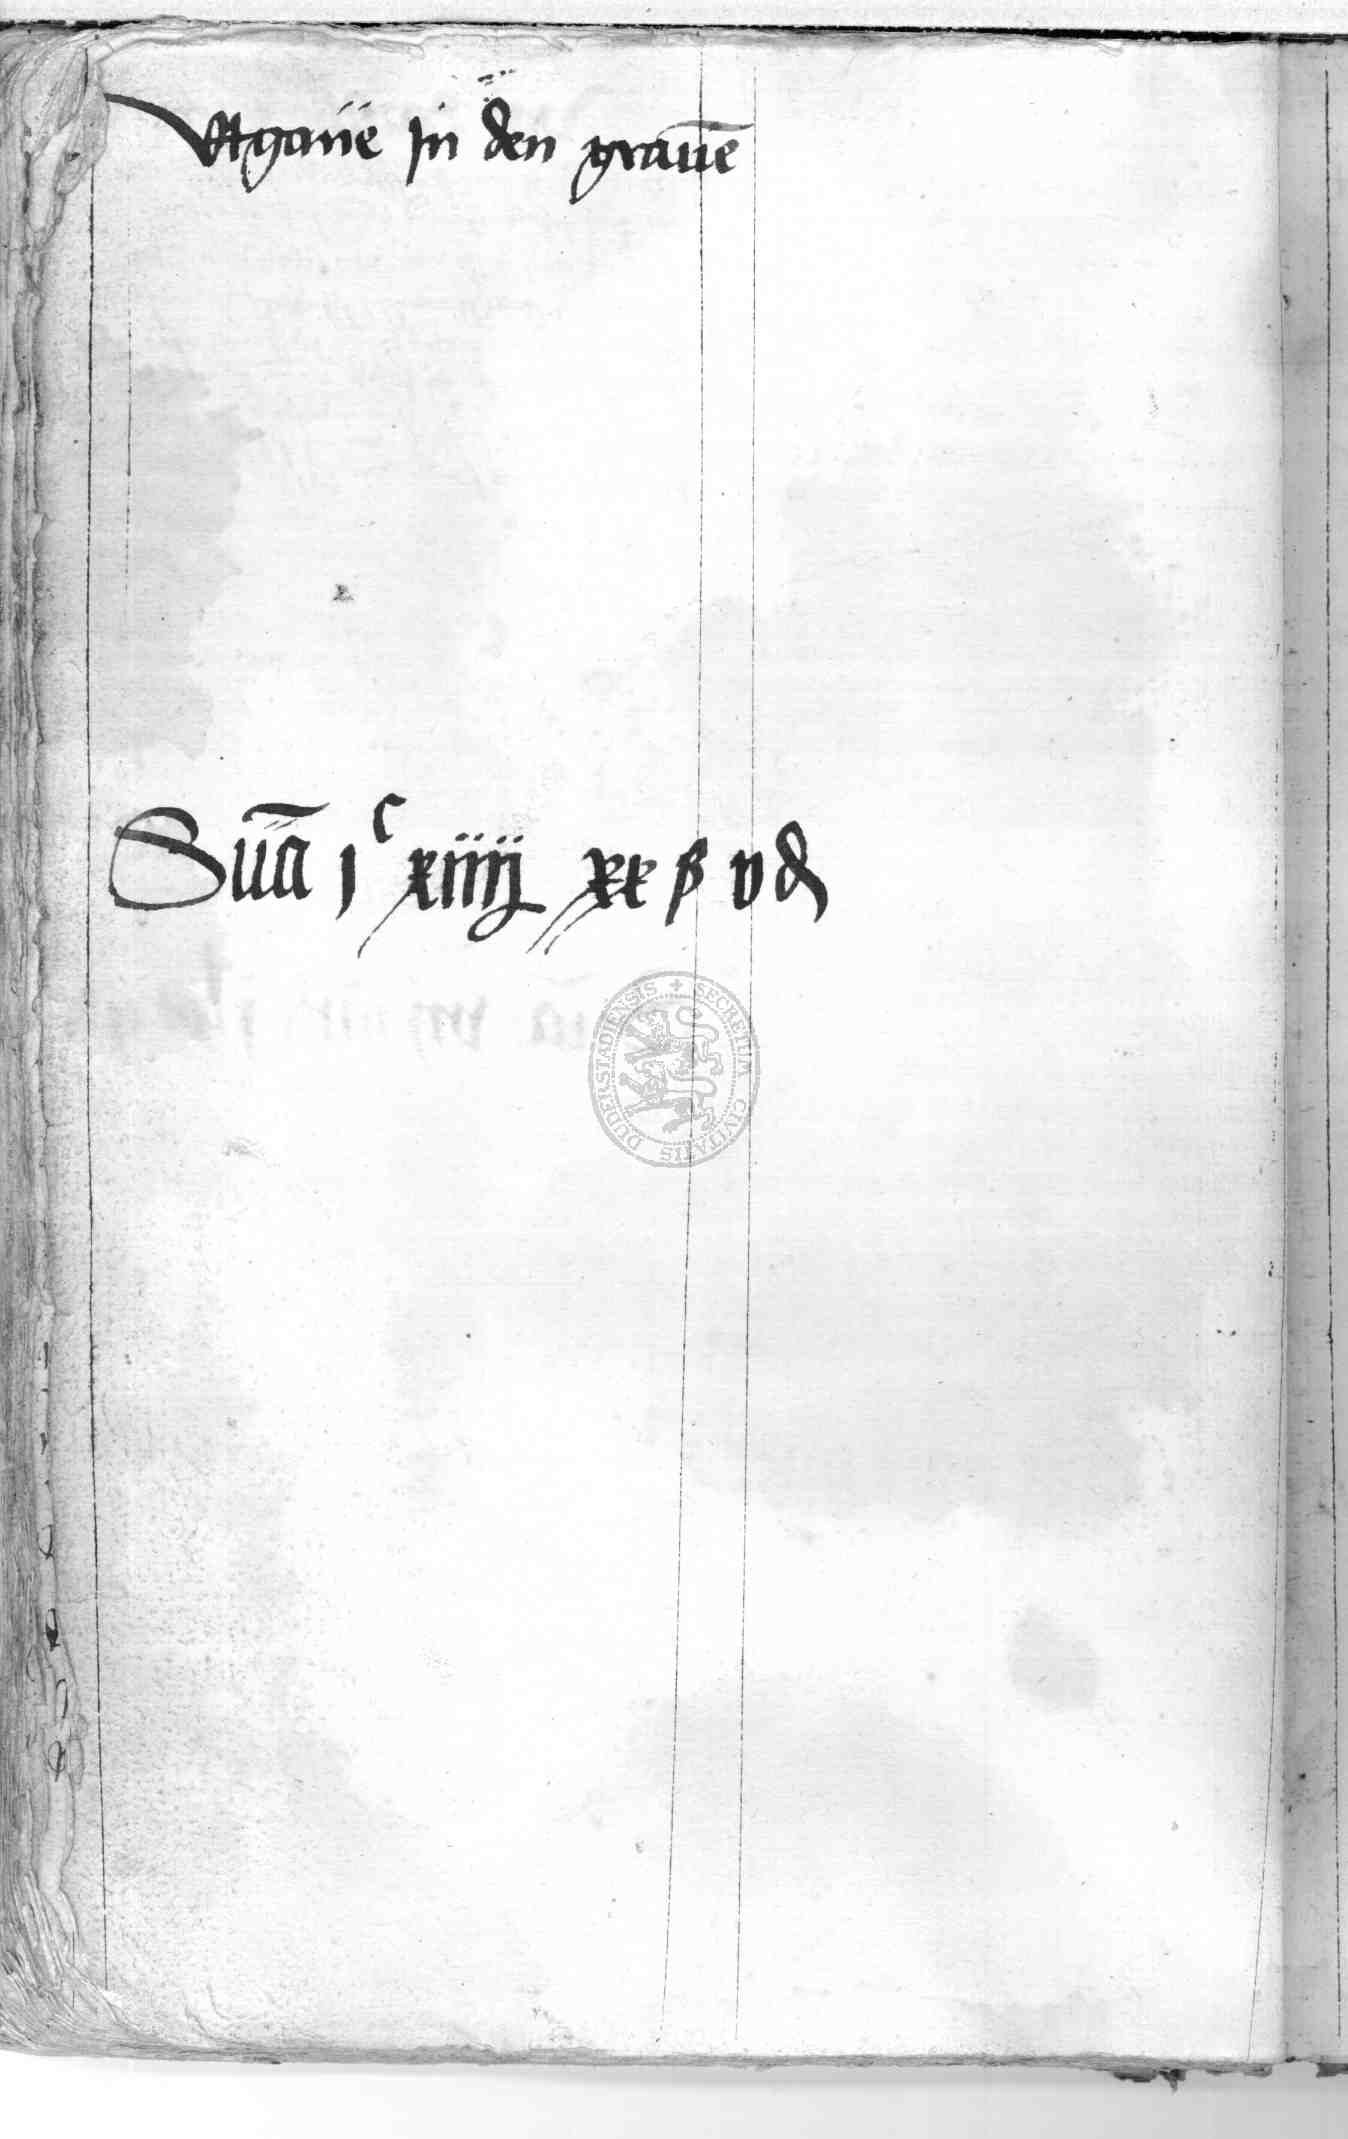 Vtgaue jn den grauē
Sūa jᶜ xiiij xx ß v ₰
SECRETUM CIVITATIS DUDERSTADIENSIS